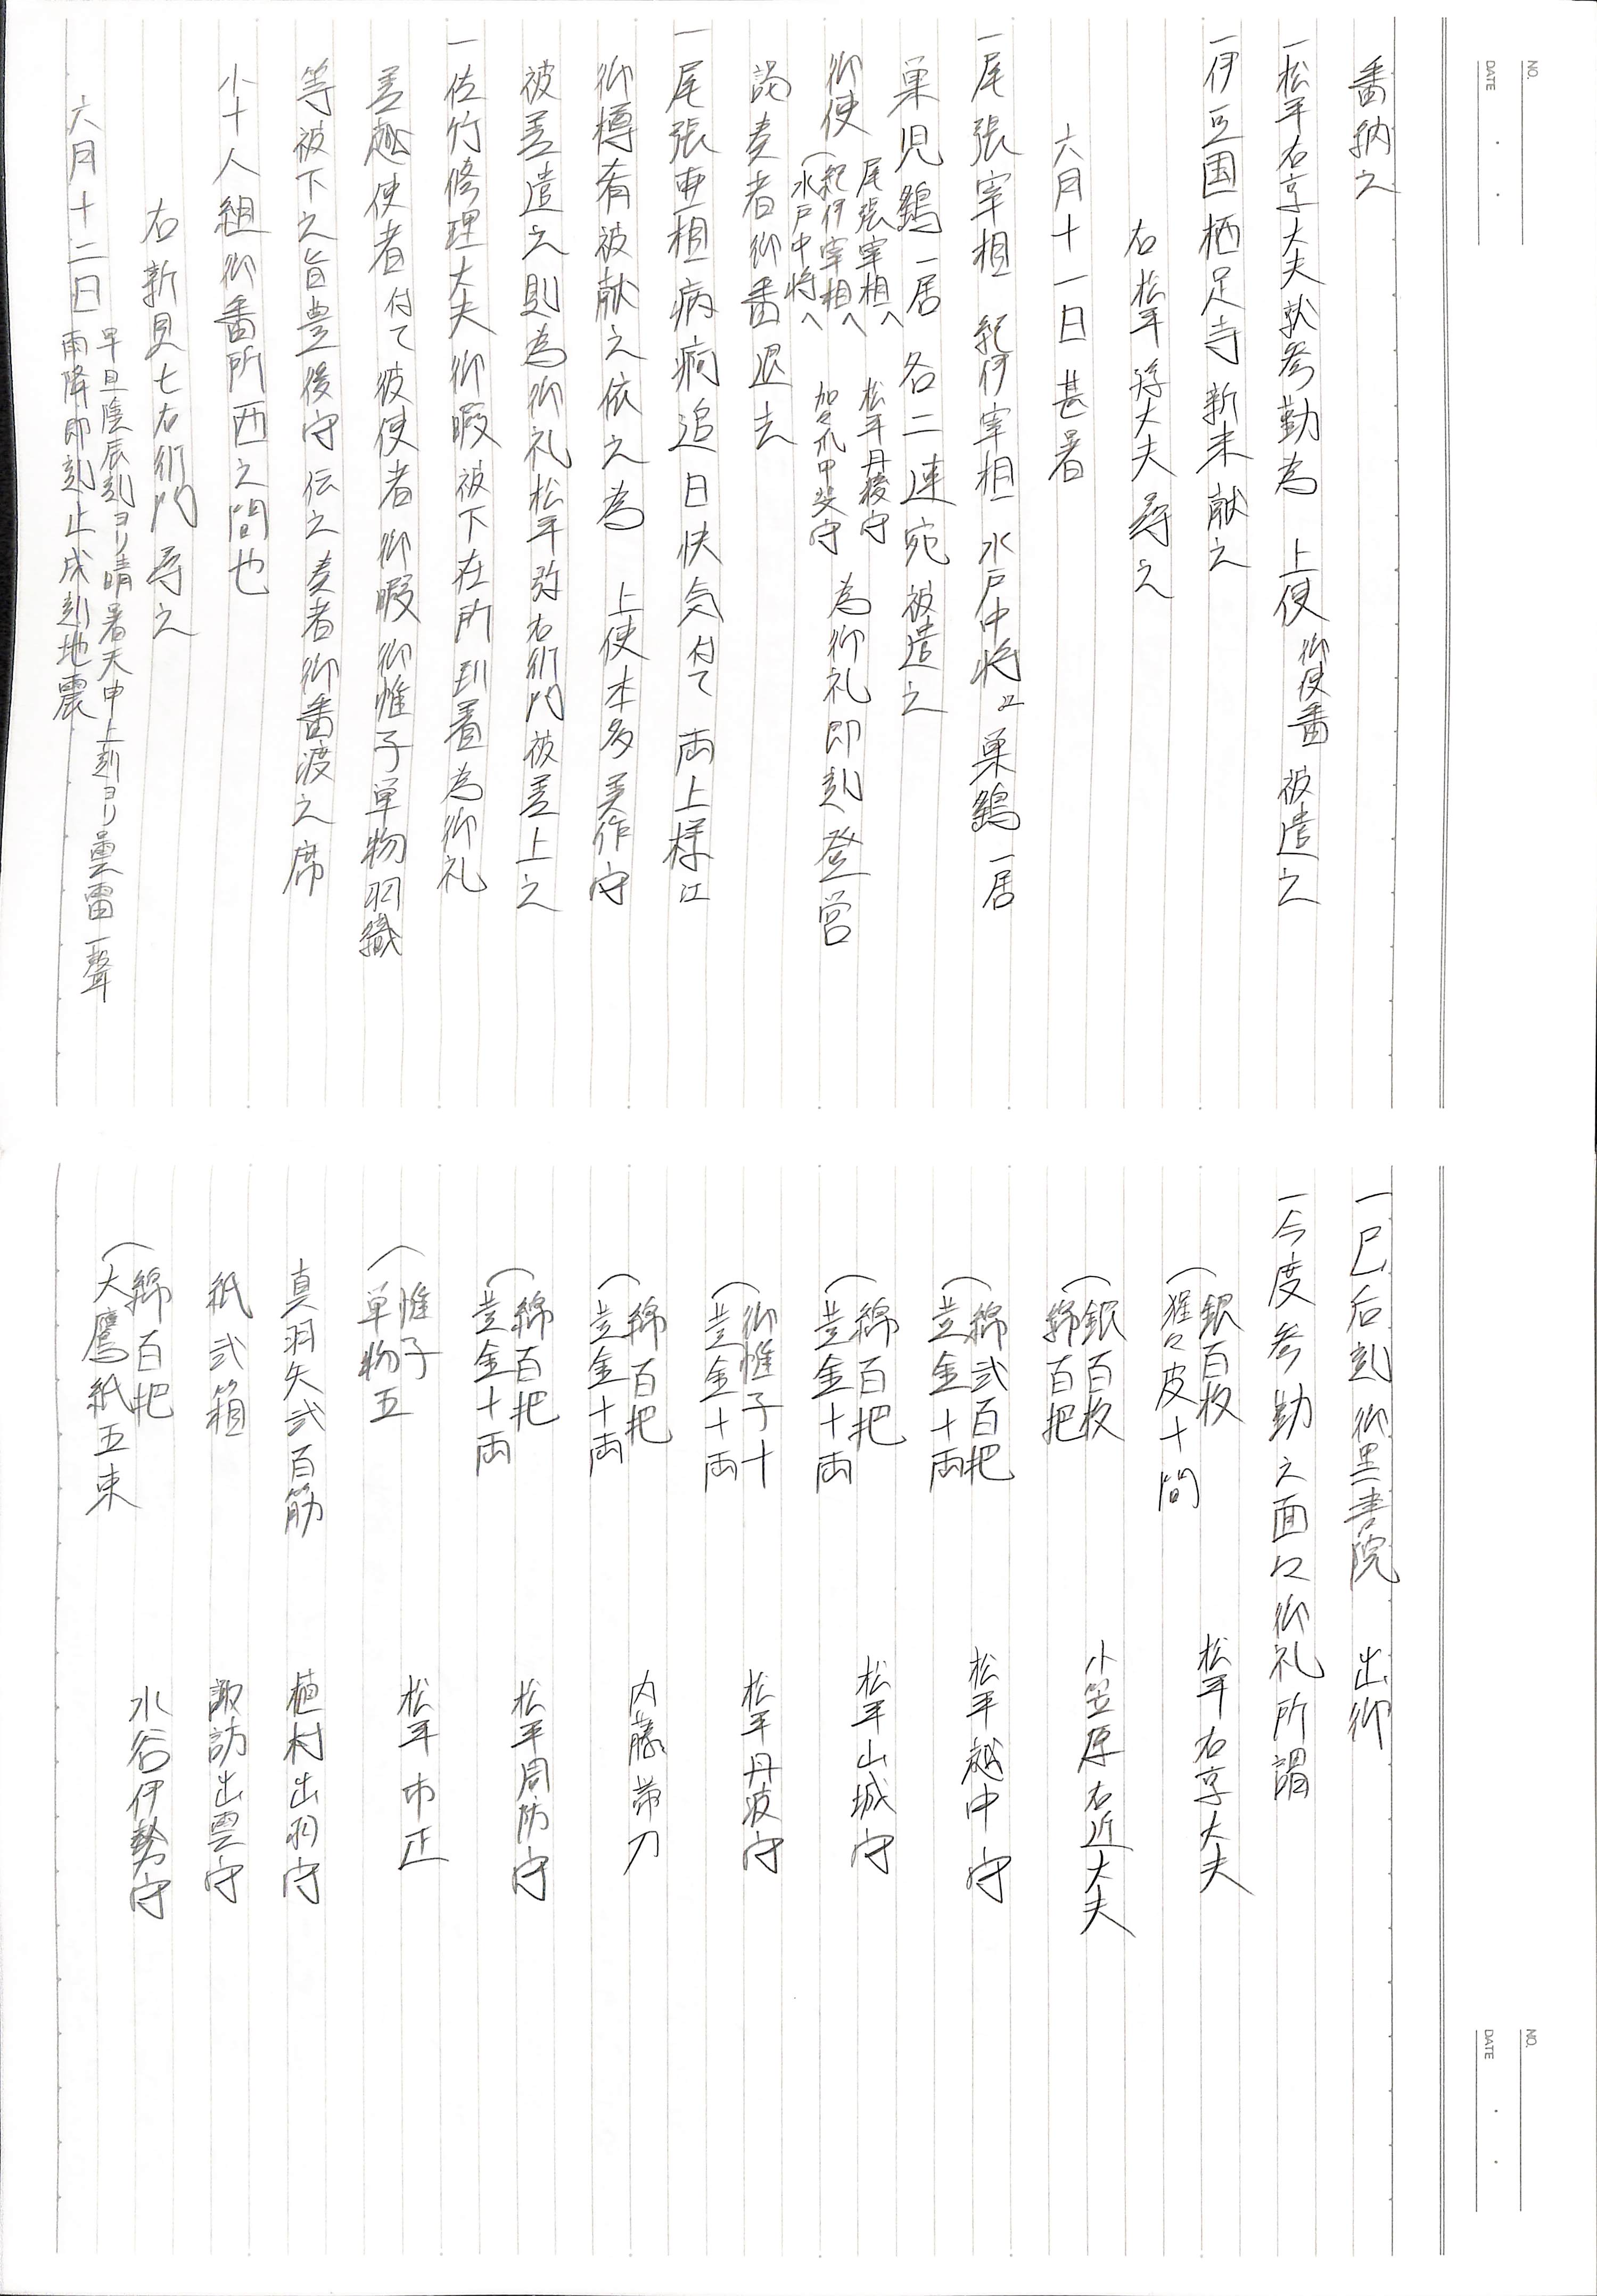 NO.
DATE
番納之
一松平右京大夫就参勤為 上使 御使番 被遣之
一伊豆国栖足寺新末献之
右松平 大夫尋之
六月十一日甚暑
一尾張宰相 紀伊宰相 水戸中将江巣鷂一居
巣児鷂一居 各二連宛被遣之
御使 尾張宰相へ 松平丹後守 為御礼即刻登営
紀伊宰相へ 加々爪甲斐守
水戸中将へ
謁奏者御番退去
一尾張亜相病痾追日快気付て 両上様江
御樽肴被献之依之為 上使本多美作守
被差遣之則為御礼松平弥右衛門被差上之
一佐竹修理大夫御暇被下在所到着為御礼
差越使者付て彼使者御暇御帷子単物羽織
等被下之旨豊後守伝之奏者御番渡之席
小十人組御番所西之間也
右新見七右衛門尋之
六月十二日 早旦陰辰刻ヨリ晴暑天申上刻ヨリ曇雷一聲
雨降即刻止戌刻地震
NO.
DATE
一巳后刻御黒書院 出御
一今度参勤之面々御礼所謂
銀百枚
猩々皮十間 松平右京大夫
銀百枚
綿百把 小笠原右近大夫
綿弐百把
黄金十両 松平越中守
綿百把
黄金十両 松平山城守
御帷子十
黄金十両 松平丹波守
綿百把
黄金十両 内藤帯刀
綿百把
黄金十両 松平周防守
帷子
単物五 松平市正
真羽矢弐百筋 植村出羽守
紙弐箱 諏訪出雲守
綿百把
大鷹紙五束 水谷伊勢守